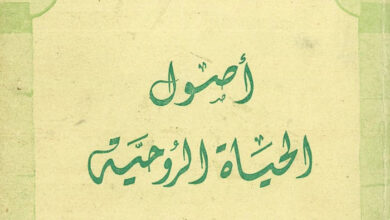 أصول
الحياة الروحيّة